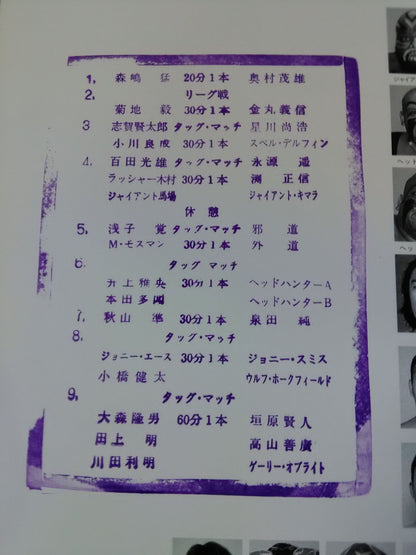 1, 森嶋 猛 20分1本 奥村茂雄
2, リーグ戦
菊地 毅 30分1本 金丸義信
3 志賀賢太郎 タッグ・マッチ 星川尚浩
小川良成 30分1本 スペル・デルフィン
4, 百田光雄 タッグ・マッチ 永源 遥
ラッシャー木村 30分1本 渕 正信
ジャイアント馬場 ジャイアント・キマラ
休憩
5, 浅子 覚 タッグ・マッチ 邪道
M・モスマン 30分1本 外道
6, タッグ マッチ
井上雅央 30分1本 ヘッドハンターA
本田多聞 ヘッドハンターB
7, 秋山 準 30分1本 泉田 純
8, タッグ・マッチ
ジョニー・エース 30分1本 ジョニー・スミス
小橋健太 ウルフ・ホークフィールド
9, タッグ・マッチ
大森隆男 60分1本 垣原賢人
田上 明 高山善廣
川田利明 ゲーリー・オブライト
ヘッド